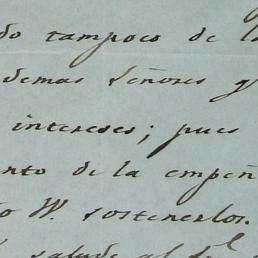 do tampoco de l
demas Señores q
intereses; pues
nto de la empeñ
o W. sostenerlos.
salude al Sr